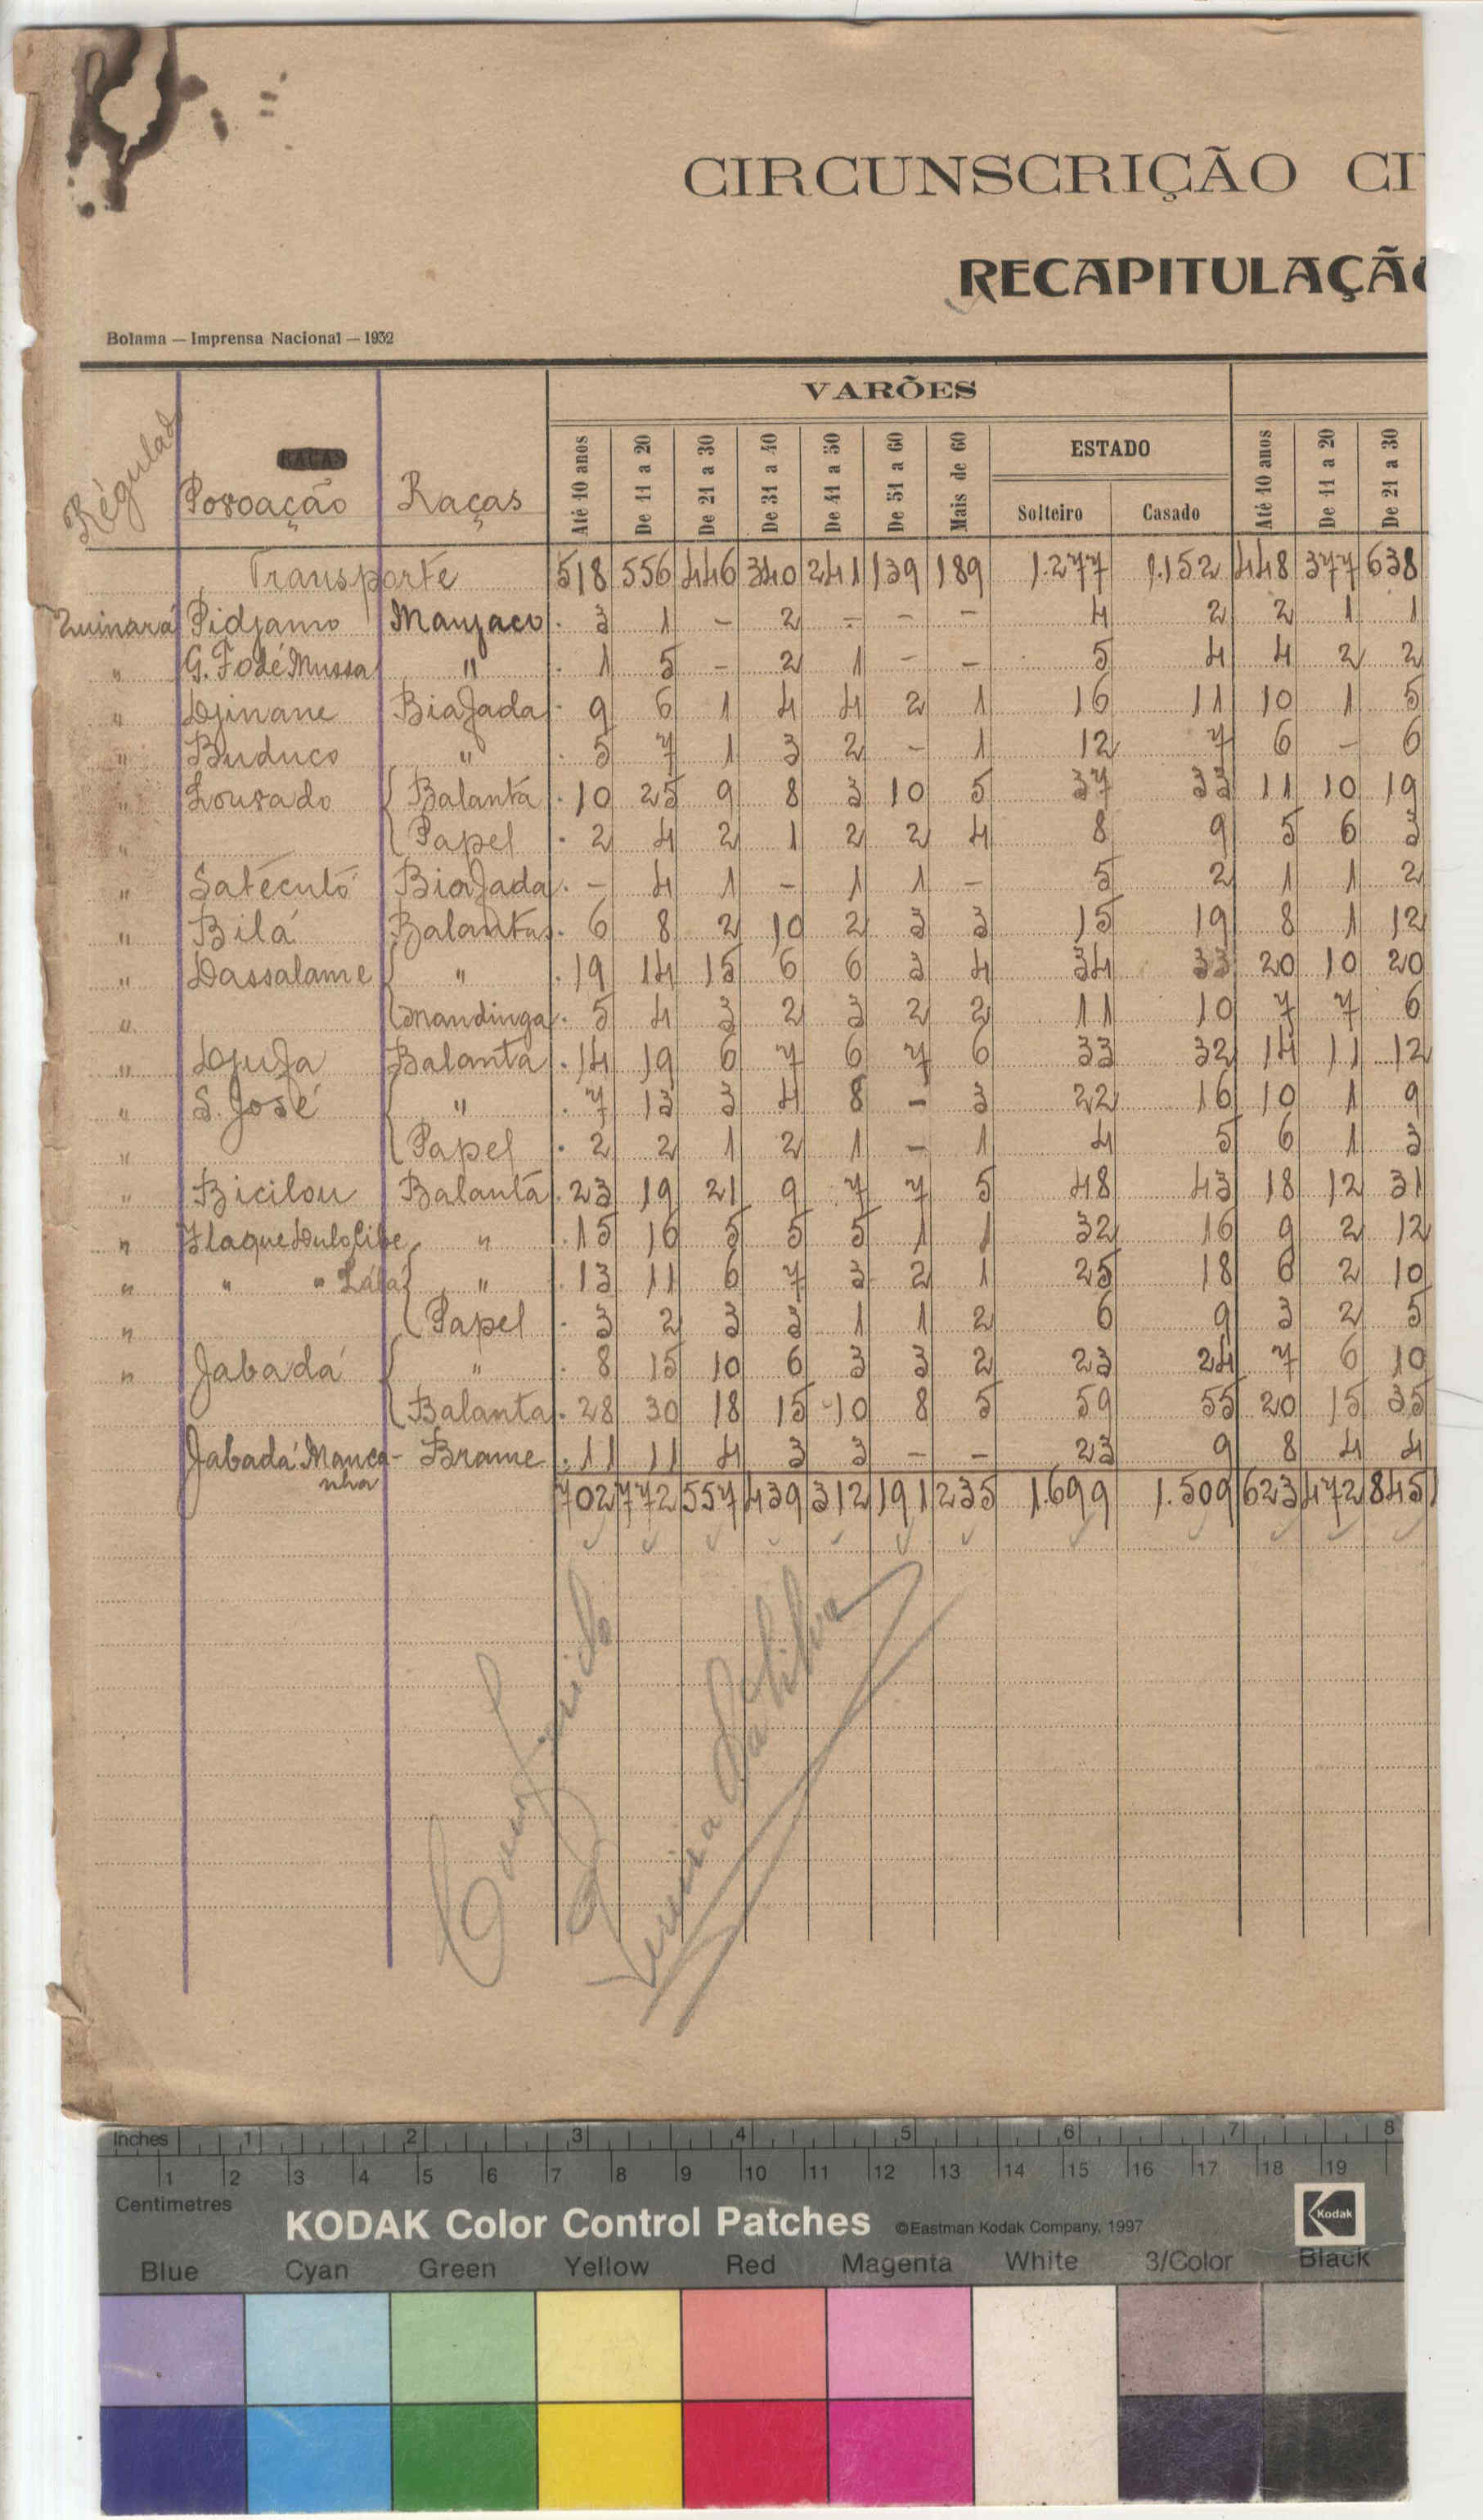 CIRCUNSCRIÇÃO CI
RECAPITULAÇÃO
Bolama — Imprensa Nacional — 1932
VARÕES
Régulad Povoação Raças Até 10 anos De 11 a 20 De 21 a 30 De 31 a 40 De 41 a 50 De 51 a 60 Mais de 60 ESTADO Solteiro Casado Até 10 anos De 11 a 20 De 21 a 30
RAÇAS
Transporte 518 556 446 340 241 139 189 1.277 1.152 448 377 638
Quinará Pidjamo Manjaco 3 1 - 2 - - - 4 2 2 1 1
" G. Fodé Mussa " 1 5 - 2 1 - - 5 4 4 2 2
" Djinane Biafada 9 6 1 4 4 2 1 16 11 10 1 5
" Buduco " 5 7 1 3 2 - 1 12 7 6 - 6
" Lourado Balanta 10 25 9 8 3 10 5 37 33 11 10 19
" Papel 2 4 2 1 2 2 4 8 9 5 6 3
" Satécutó Biafada - 4 1 - 1 1 - 5 2 1 1 2
" Bilá Balantas 6 8 2 10 2 3 3 15 19 8 1 12
" Dassalame " 19 14 15 6 6 3 4 34 33 20 10 20
" Mandinga 5 4 3 2 3 2 2 11 10 7 7 6
" Djufa Balanta 14 19 6 7 6 7 6 33 32 14 11 12
" S. José " 7 13 3 4 8 - 3 22 16 10 1 9
" Papel 2 2 1 2 1 - 1 4 5 6 1 3
" Bicilou Balanta 23 19 21 9 7 7 5 48 43 18 12 31
" Flaque Dulo Cibe " 15 16 5 5 5 1 1 32 16 9 2 12
" " " Lála " 13 11 6 7 3 2 1 25 18 6 2 10
" Papel 3 2 3 3 1 1 2 6 9 3 2 5
" Jabadá " 8 15 10 6 3 3 2 23 24 7 6 10
Balanta 28 30 18 15 10 8 5 59 55 20 15 35
Jabadá Manca- Brame 11 11 4 3 3 - - 23 9 8 4 4
nha
702 772 557 439 312 191 235 1.699 1.509 623 472 845
Conferido
Inches 1 2 3 4 5 6 7 8
1 2 3 4 5 6 7 8 9 10 11 12 13 14 15 16 17 18 19
Centimetres
KODAK Color Control Patches ©Eastman Kodak Company, 1997 Kodak
Blue Cyan Green Yellow Red Magenta White 3/Color Black